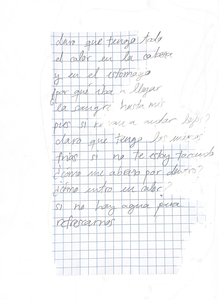 claro que tengo todo
el calor en la cabeza
y en el estómago
por qué iba a llegar
la sangre hasta mis
pies si no van a andar lejos?
claro que tengo las manos
frías si no te estoy tocando
¿cómo me abrigo por dentro?
¿cómo entro en calor?
si no hay agua para
refrescarnos